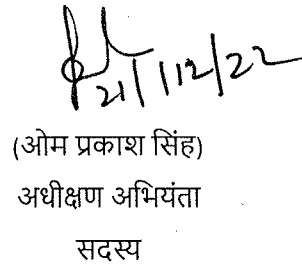 21/12/22
(ओम प्रकाश सिंह)
अधीक्षण अभियंता
सदस्य